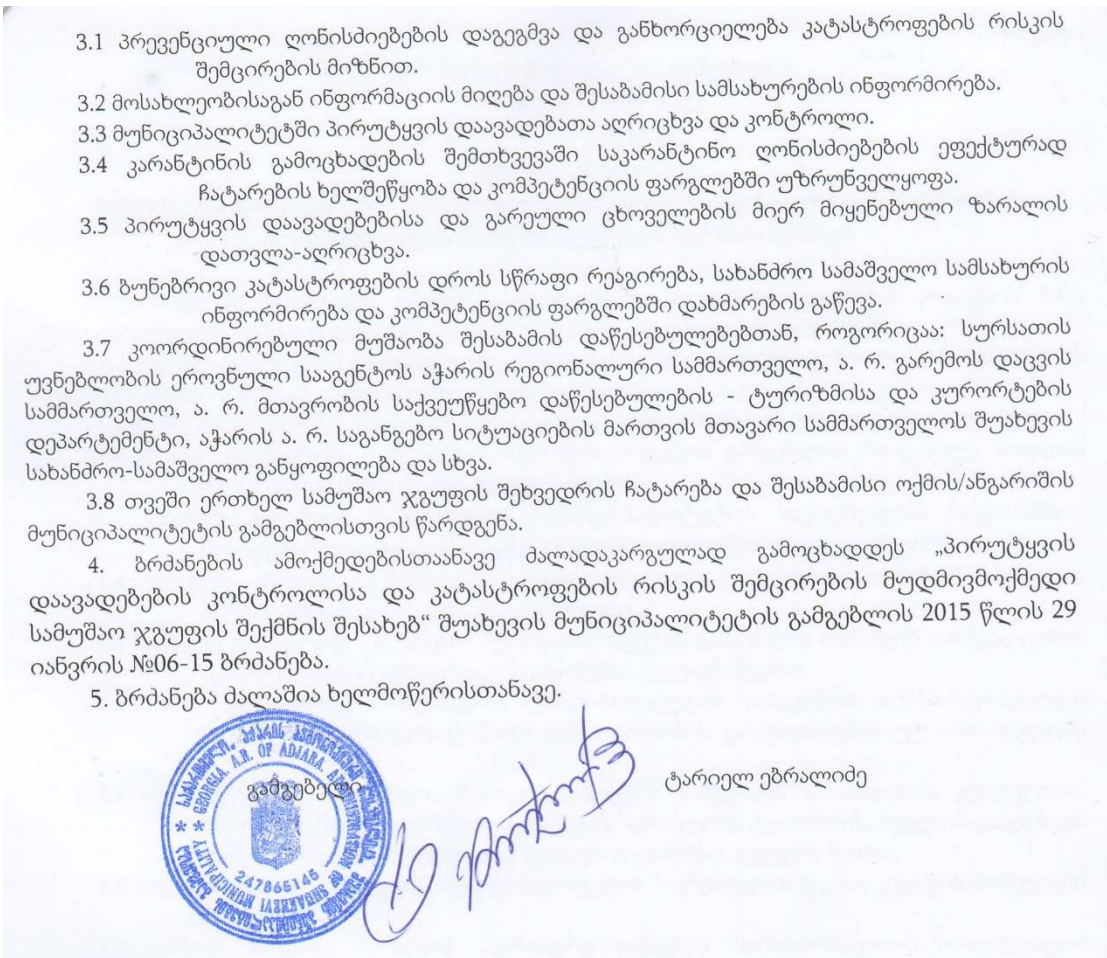 3.1 პრევენციული ღონისძიებების დაგეგმვა და განხორციელება კატასტროფების რისკის
შემცირების მიზნით.
3.2 მოსახლეობისაგან ინფორმაციის მიღება და შესაბამისი სამსახურების ინფორმირება.
3.3 მუნიციპალიტეტში პირუტყვის დაავადებათა აღრიცხვა და კონტროლი.
3.4 კარანტინის გამოცხადების შემთხვევაში საკარანტინო ღონისძიებების ეფექტურად
ჩატარების ხელშეწყობა და კომპეტენციის ფარგლებში უზრუნველყოფა.
3.5 პირუტყვის დაავადებებისა და გარეული ცხოველების მიერ მიყენებული ზარალის
დათვლა-აღრიცხვა.
3.6 ბუნებრივი კატასტროფების დროს სწრაფი რეაგირება, სახანძრო სამაშველო სამსახურის
ინფორმირება და კომპეტენციის ფარგლებში დახმარების გაწევა.
3.7 კოორდინირებული მუშაობა შესაბამის დაწესებულებებთან, როგორიცაა: სურსათის
უვნებლობის ეროვნული სააგენტოს აჭარის რეგიონალური სამმართველო, ა. რ. გარემოს დაცვის
სამმართველო, ა. რ. მთავრობის საქვეუწყებო დაწესებულების - ტურიზმისა და კურორტების
დეპარტემენტი, აჭარის ა. რ. საგანგებო სიტუაციების მართვის მთავარი სამმართველოს შუახევის
სახანძრო-სამაშველო განყოფილება და სხვა.
3.8 თვეში ერთხელ სამუშაო ჯგუფის შეხვედრის ჩატარება და შესაბამისი ოქმის/ანგარიშის
მუნიციპალიტეტის გამგებლისთვის წარდგენა.
4. ბრძანების ამოქმედებისთაანავე ძალადაკარგულად გამოცხადდეს „პირუტყვის
დაავადებების კონტროლისა და კატასტროფების რისკის შემცირების მუდმივმოქმედი
სამუშაო ჯგუფის შექმნის შესახებ“ შუახევის მუნიციპალიტეტის გამგებლის 2015 წლის 29
იანვრის №06-15 ბრძანება.
5. ბრძანება ძალაშია ხელმოწერისთანავე.
გამგებელი
ტარიელ ებრალიძე
GEORGIA, A.R. OF ADJARA, ADMINISTRATION OF SHUAKHEVI MUNICIPALITY
247865145